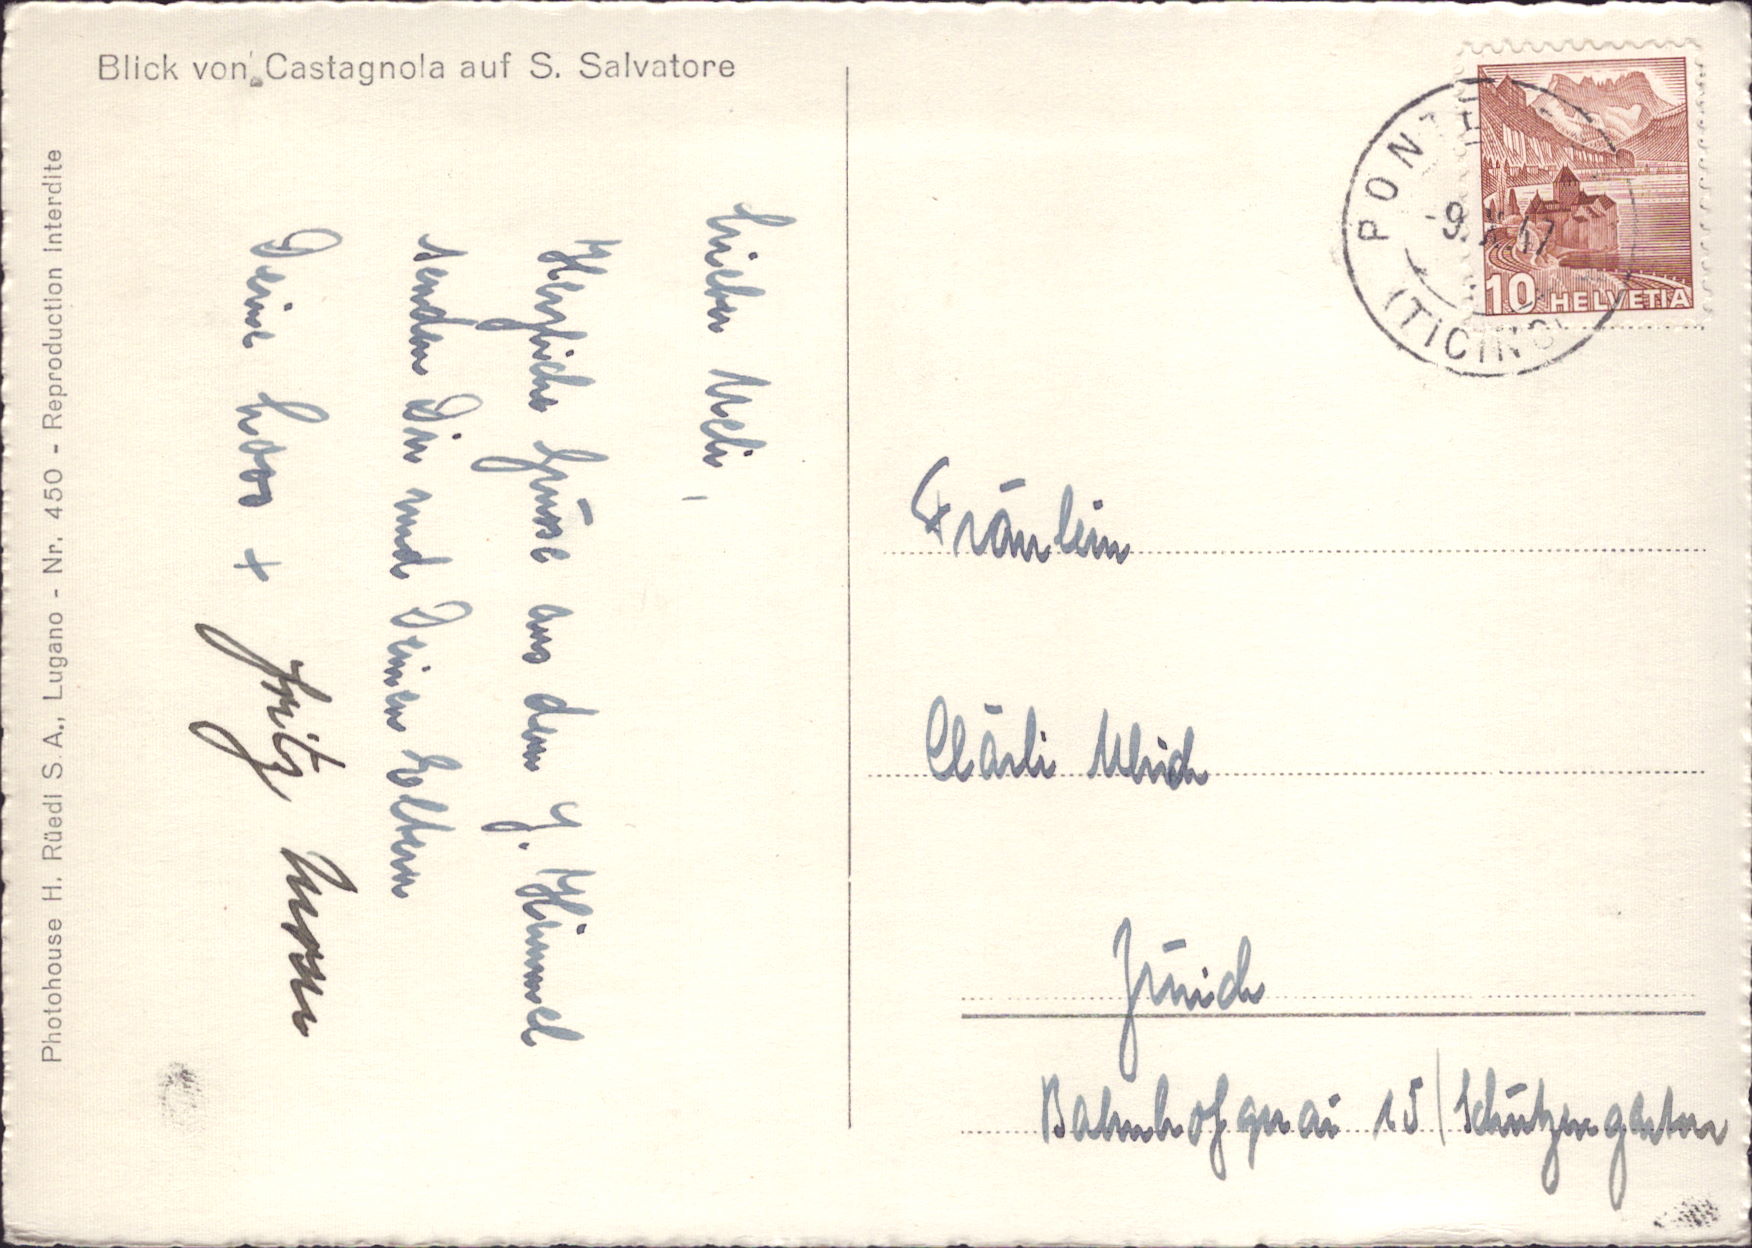 Blick von Castagnola auf S. Salvatore
Photohouse H. Rüedi S. A., Lugano - Nr. 450 - Reproduction interdite
Herzliche Grüsse aus dem g. Himmel
senden Dir und Deinen Eltern
Deine +
Fritz
PONT
9. X. 47
(TICINO)
10 HELVETIA
Fräulein
Clärli Ulrich
Zürich
Bahnhofquai 15 / Schützengarten